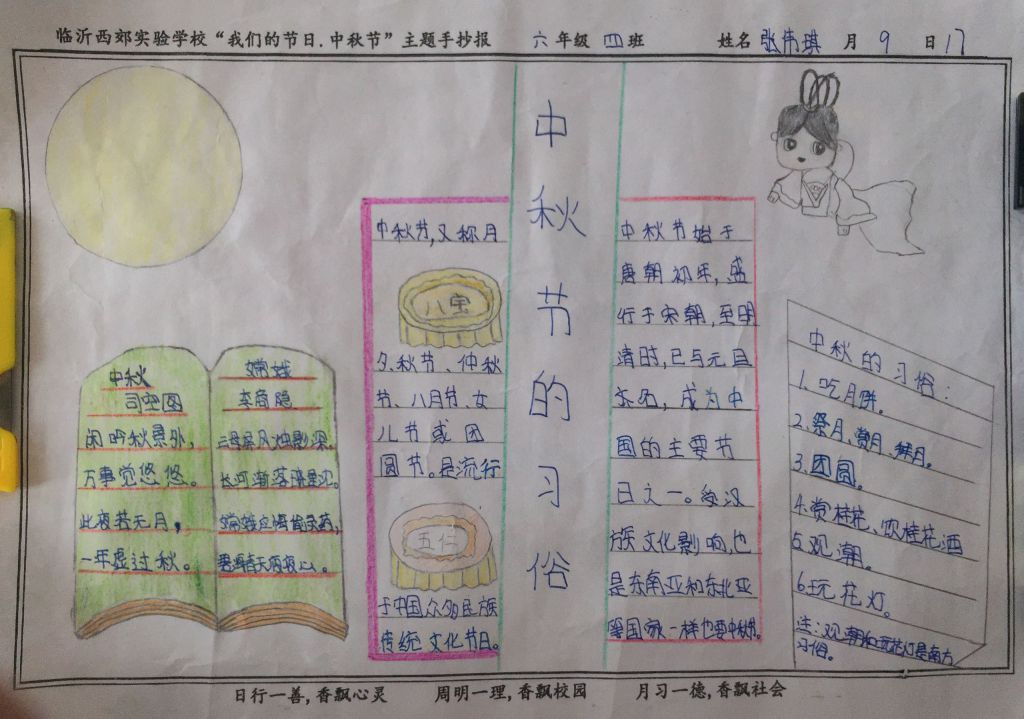 临沂西郊实验学校“我们的节日.中秋节”主题手抄报 六年级 四班 姓名 张伟琪 月 9 日 17
中秋节的习俗
中秋
司空图
闲吟秋景外，
万事觉悠悠。
此夜若无月，
一年虚过秋。
嫦娥
李商隐
云母屏风烛影深，
长河渐落晓星沉。
嫦娥应悔偷灵药，
碧海青天夜夜心。
中秋节，又称月
八宝
夕、秋节、仲秋
节、八月节、女
儿节或团
圆节。是流行
五仁
于中国众多民族
传统文化节日。
中秋节始于
唐朝初年，盛
行于宋朝，至明
清时，已与元旦
齐名，成为中
国的主要节
日之一。受汉
族文化影响，也
是东南亚和东北亚
等国家一样也要中秋节。
中秋的习俗：
1、吃月饼。
2、祭月、赏月、拜月。
3、团圆。
4、赏桂花、饮桂花酒
5、观潮。
6、玩花灯。
注：观潮和玩花灯是南方
习俗。
日行一善，香飘心灵 周明一理，香飘校园 月习一德，香飘社会